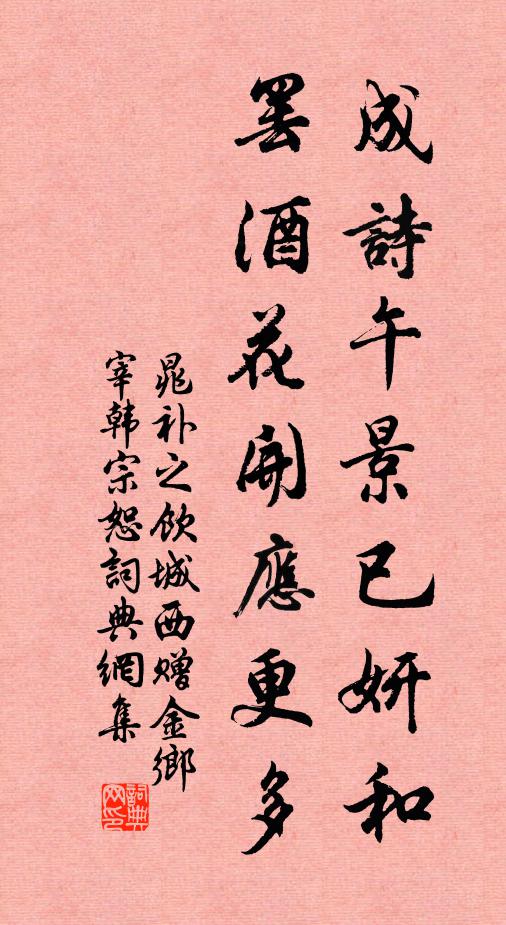 成詩午景已妍和
罷酒花開應更多
晁补之飲城西贈金鄉
宰韩宗恕詞典網集
詞典网印